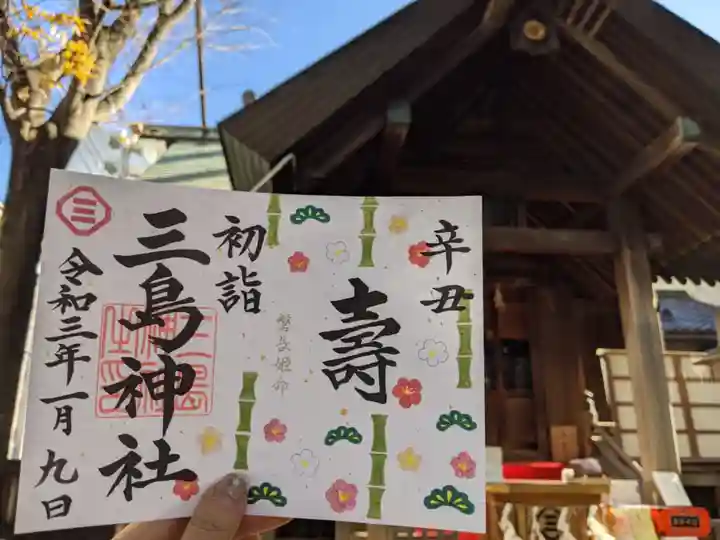 辛丑
壽
磐長姫命
初詣
三島神社
令和三年一月九日
三